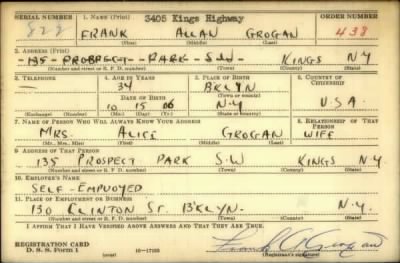 SERIAL NUMBER 1. NAME (Print) 3405 Kings Highway ORDER NUMBER
828 FRANK ALLAN GROGAN 438
(First) (Middle) (Last)
2. ADDRESS (Print)
135 PROSPECT PARK S.W KINGS N.Y
(Number and street or R. F. D. number) (Town) (County) (State)
3. TELEPHONE 4. AGE IN YEARS 5. PLACE OF BIRTH 6. COUNTRY OF CITIZENSHIP
— 34 BKLYN
DATE OF BIRTH (Town or county)
10 15 06 N.Y U.S.A.
(Exchange) (Number) (Mo.) (Day) (Yr.) (State or country)
7. NAME OF PERSON WHO WILL ALWAYS KNOW YOUR ADDRESS 8. RELATIONSHIP OF THAT PERSON
MRS. ALICE GROGAN WIFE
(Mr., Mrs., Miss) (First) (Middle) (Last)
9. ADDRESS OF THAT PERSON
135 PROSPECT PARK S.W KINGS N.Y.
(Number and street or R. F. D. number) (Town) (County) (State)
10. EMPLOYER'S NAME
SELF-EMPLOYED
11. PLACE OF EMPLOYMENT OR BUSINESS
130 CLINTON ST. B'KLYN. N.Y.
(Number and street or R. F. D. number) (Town) (County) (State)
I AFFIRM THAT I HAVE VERIFIED ABOVE ANSWERS AND THAT THEY ARE TRUE.
REGISTRATION CARD
D. S. S. FORM 1 (over) 16—17105 (Registrant's signature)